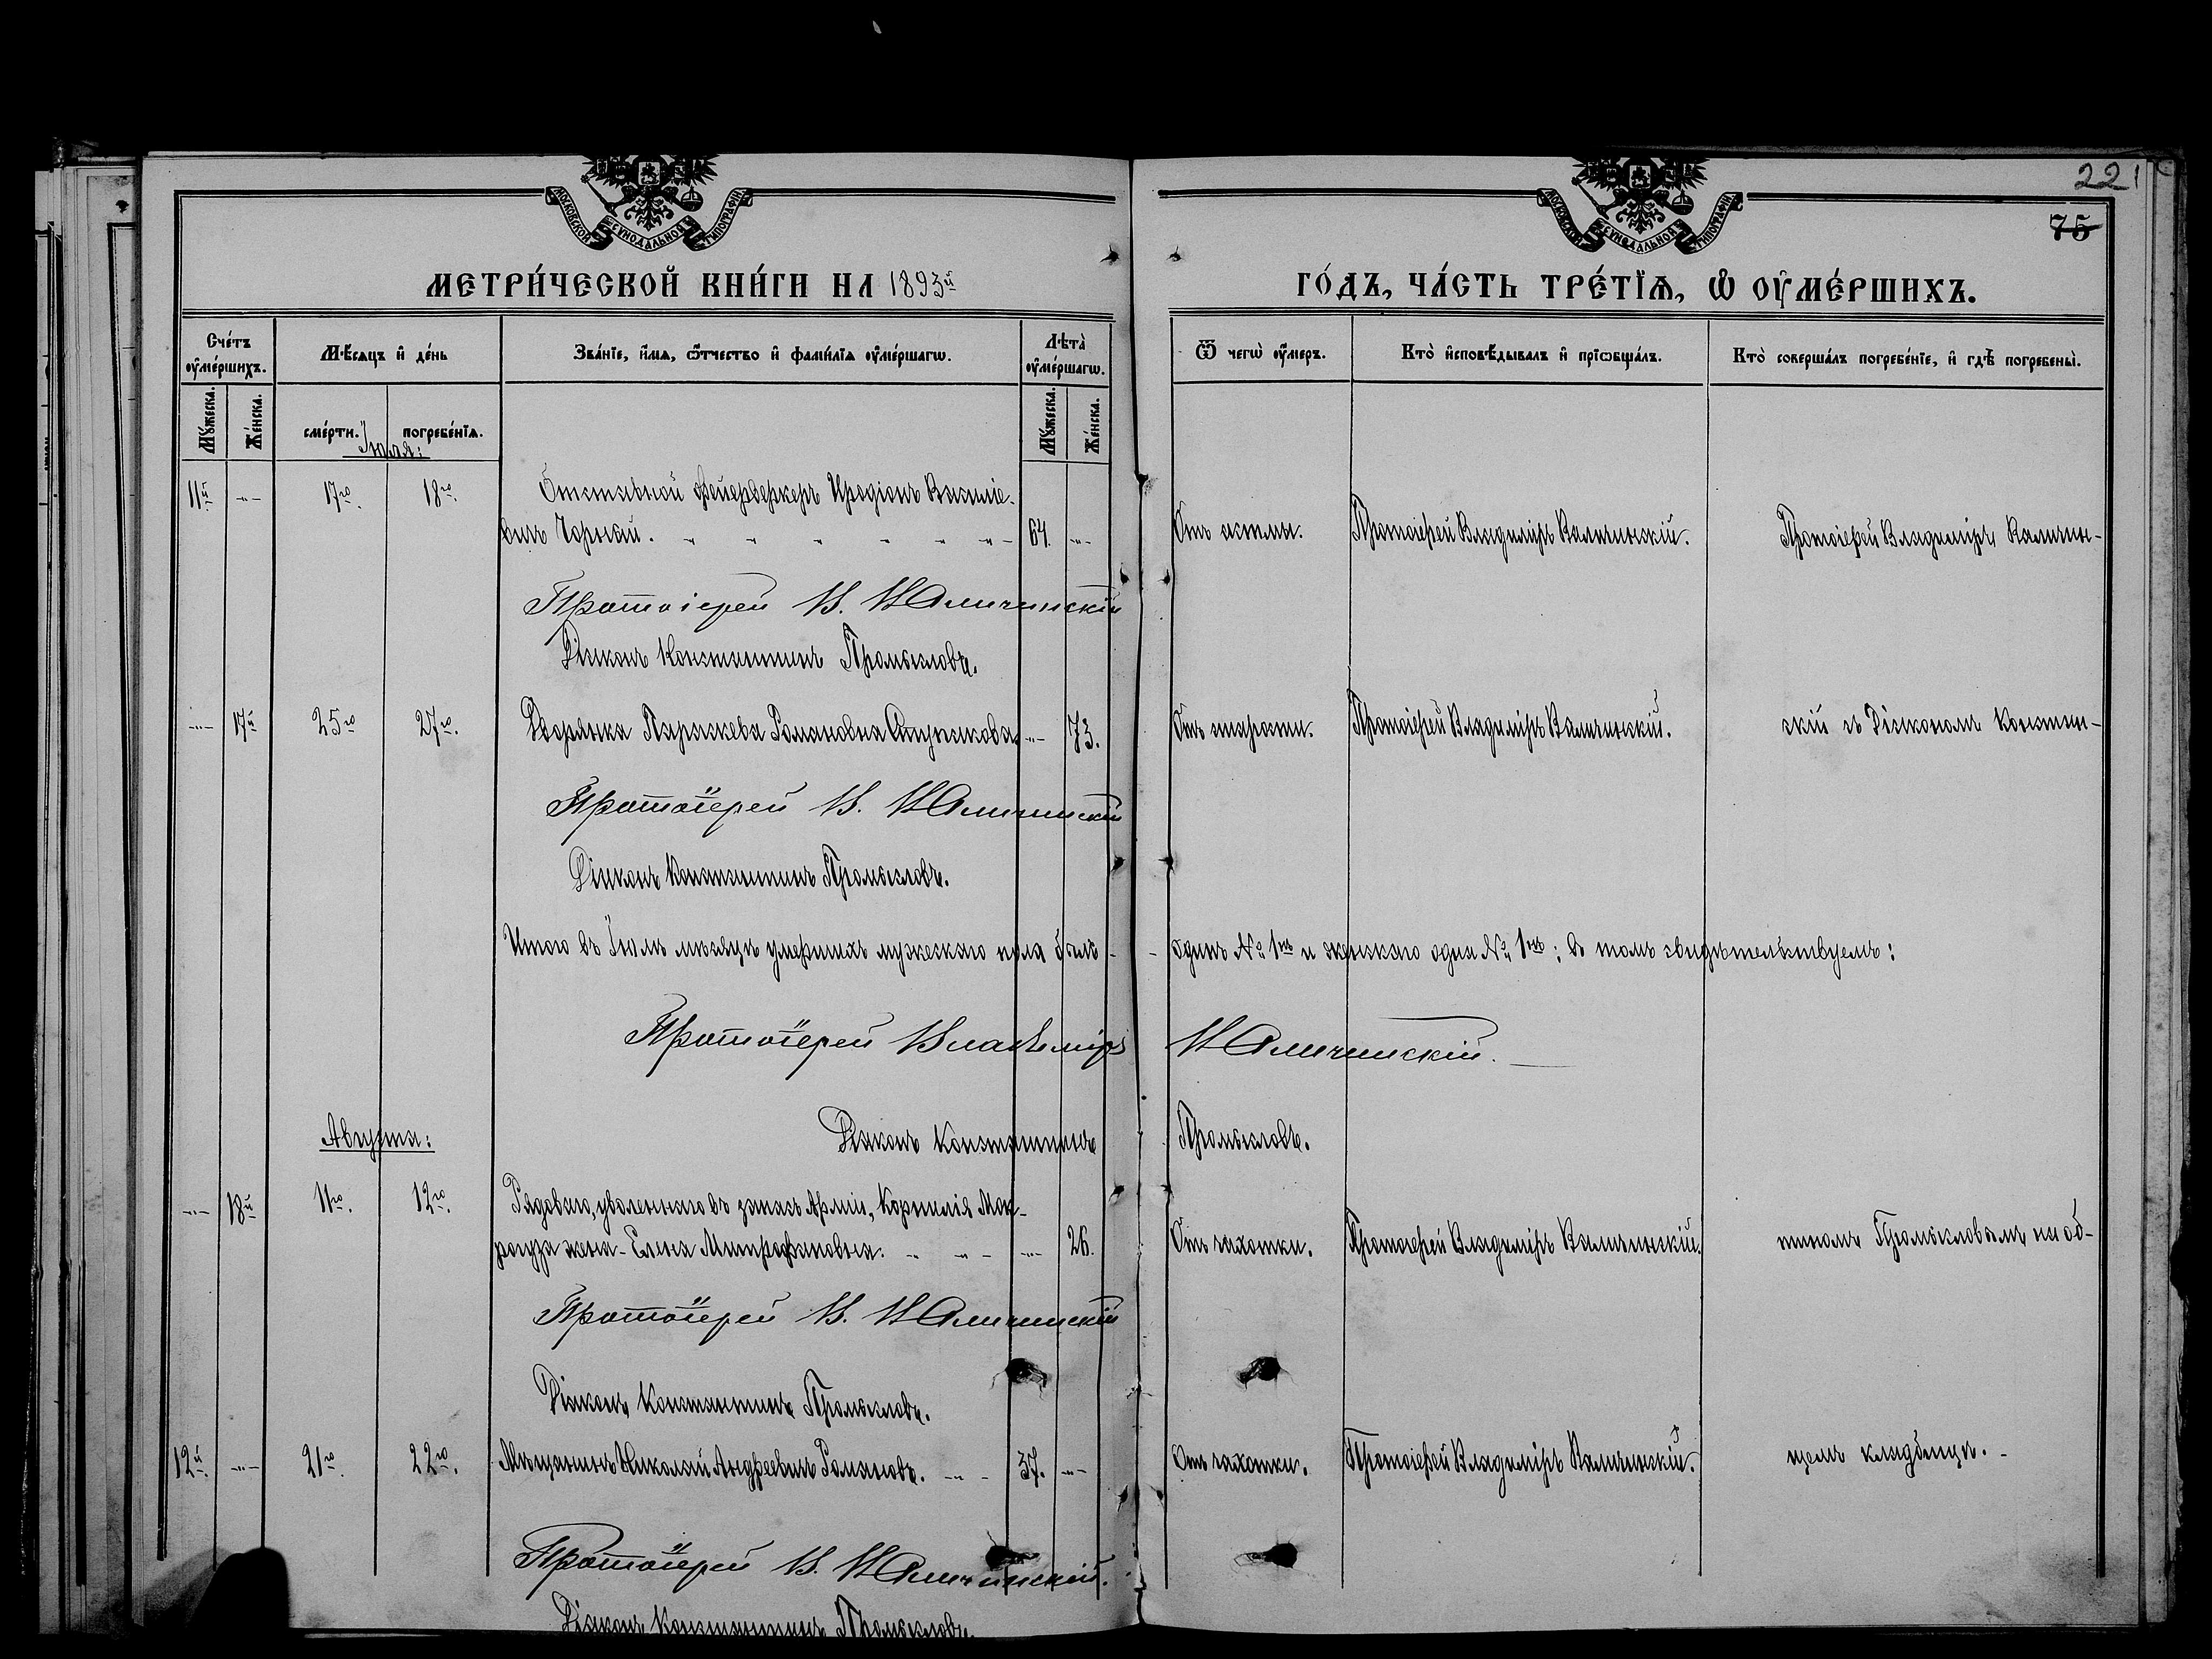 221
75
МОСКОВСКОЙ СѴНОДАЛЬНОЙ ТИПОГРАФІИ
МОСКОВСКОЙ СѴНОДАЛЬНОЙ ТИПОГРАФІИ
МЕТРИ́ЧЕСКОЙ КНИ́ГИ НА 1893й ГО́ДЪ, ЧА́СТЬ ТРЕ́ТЇѦ, Ѡ ОУМЕ́РШИХЪ.
Сче́тъ оумершихъ.
Мѣсяцъ и де́нь
Зва́нїе, и́мѧ, ѻтчество и фами́лїѧ оумершагѡ.
Лѣта̀ оумершагѡ.
Ѿ чегѡ̀ оумеръ.
Кто̀ исповѣдывалъ и прїѡбща́лъ.
Кто̀ соверша́лъ погребе́нїе, и гдѣ погребены̀.
Мꙋжеска.
Же́нска.
сме́рти.
погребе́нїѧ.
Мꙋжеска.
Же́нска.
Іюля:
11й -"- 17го. 18го. Отставной Фейерверкеръ Иродіонъ Василіе-
вичъ Чорный. 64. -"- Отъ астмы. Протоіерей Владиміръ Каличинскій. Протоіерей Владиміръ Каличин-
Протоіерей В. Каличинскій
Діаконъ Константинъ Промысловъ.
-"- 17й 25го 27го. Дворянка Параскева Романовна Ступакова -"- 73. Отъ старости. Протоіерей Владиміръ Каличинскій. скій съ Діакономъ Констан-
Протоіерей В. Каличинскій
Діаконъ Константинъ Промысловъ.
Итого въ Іюлѣ мѣсяцѣ умершихъ мужескаго пола былъ - - одинъ № 1й и женскаго одна № 1й; въ томъ свидѣтельствуемъ:
Протоіерей Владиміръ Каличинскій.
Августа:
Діаконъ Константинъ Промысловъ.
-"- 18й 11го. 12го. Рядоваго, уволеннаго въ запасъ Арміи, Корнилія Мок-
роуза жена - Елена Митрофановна. -"- 26. Отъ чахотки. Протоіерей Владиміръ Каличинскій. тиномъ Промысловымъ на об-
Протоіерей В. Каличинскій
Діаконъ Константинъ Промысловъ.
12й. -"- 21го. 22го. Мѣщанинъ Николай Андреевичъ Романовъ. 37. -"- Отъ чахотки. Протоіерей Владиміръ Каличинскій. щемъ кладбищѣ. -
Протоіерей В. Каличинскій.
Діаконъ Константинъ Промысловъ.